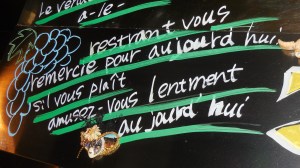 Le vend
a-le-
restrant vous
remercie pour aujourd'hui
s'il vous plaît
amusez-vous lentment
aujourd'hui